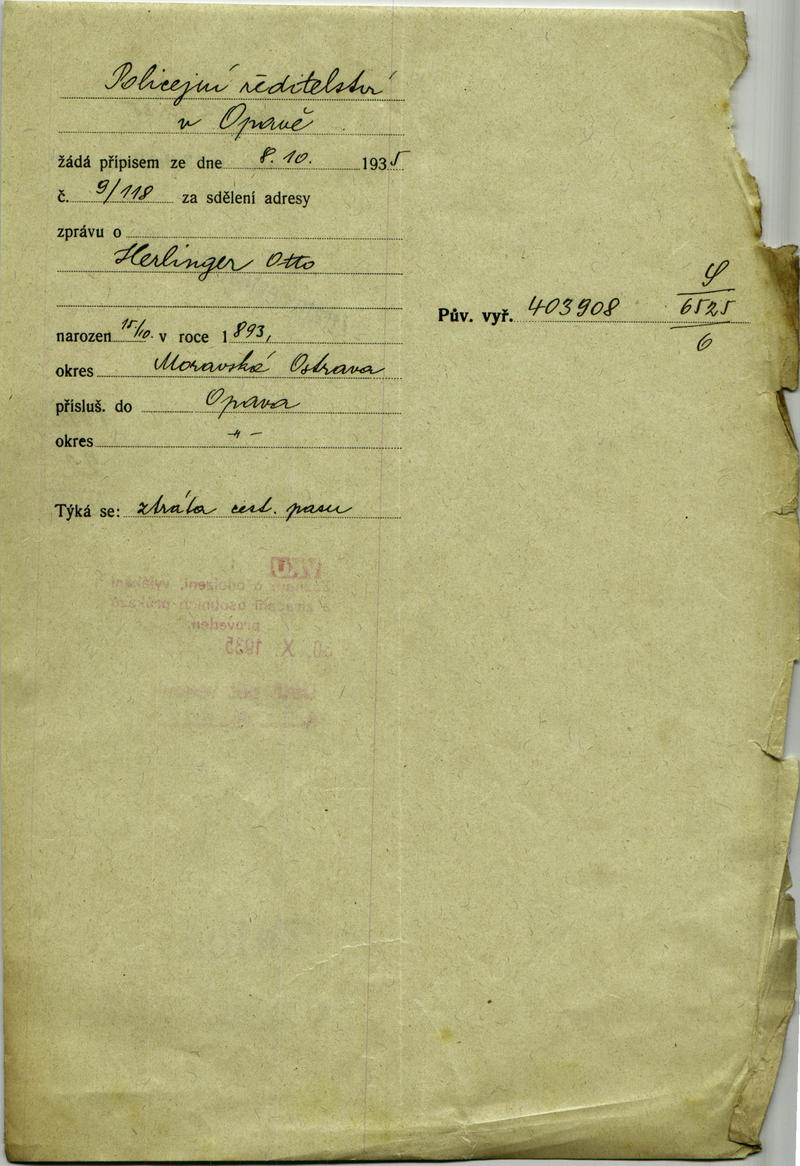 Policejní ředitelství
v Opavě
žádá přípisem ze dne 8. 10. 1935
č. 9/118 za sdělení adresy
zprávu o
Herlinger Otto
Pův. vyř. 403908 6525
6
narozen 15/10. v roce 1893,
okres Moravská Ostrava
přísluš. do Opava
okres -"-
Týká se: ztráta cest. pasu
VKU
Záznam o odcizení, vydání
a ztracení osobních průkazů
proveden.
X. 1935